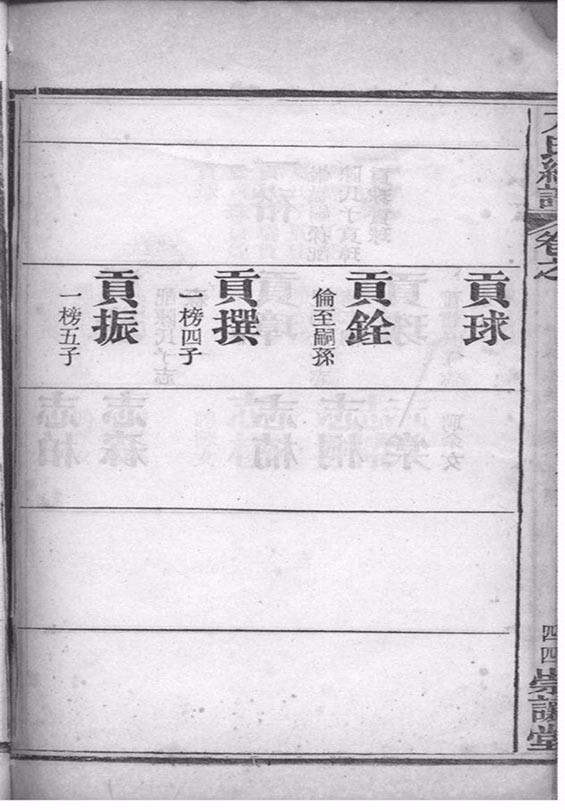 氏續譜
卷之
四四
崇讓堂
貢球
貢銓
倫至嗣孫
貢撰
一榜四子
貢振
一榜五子